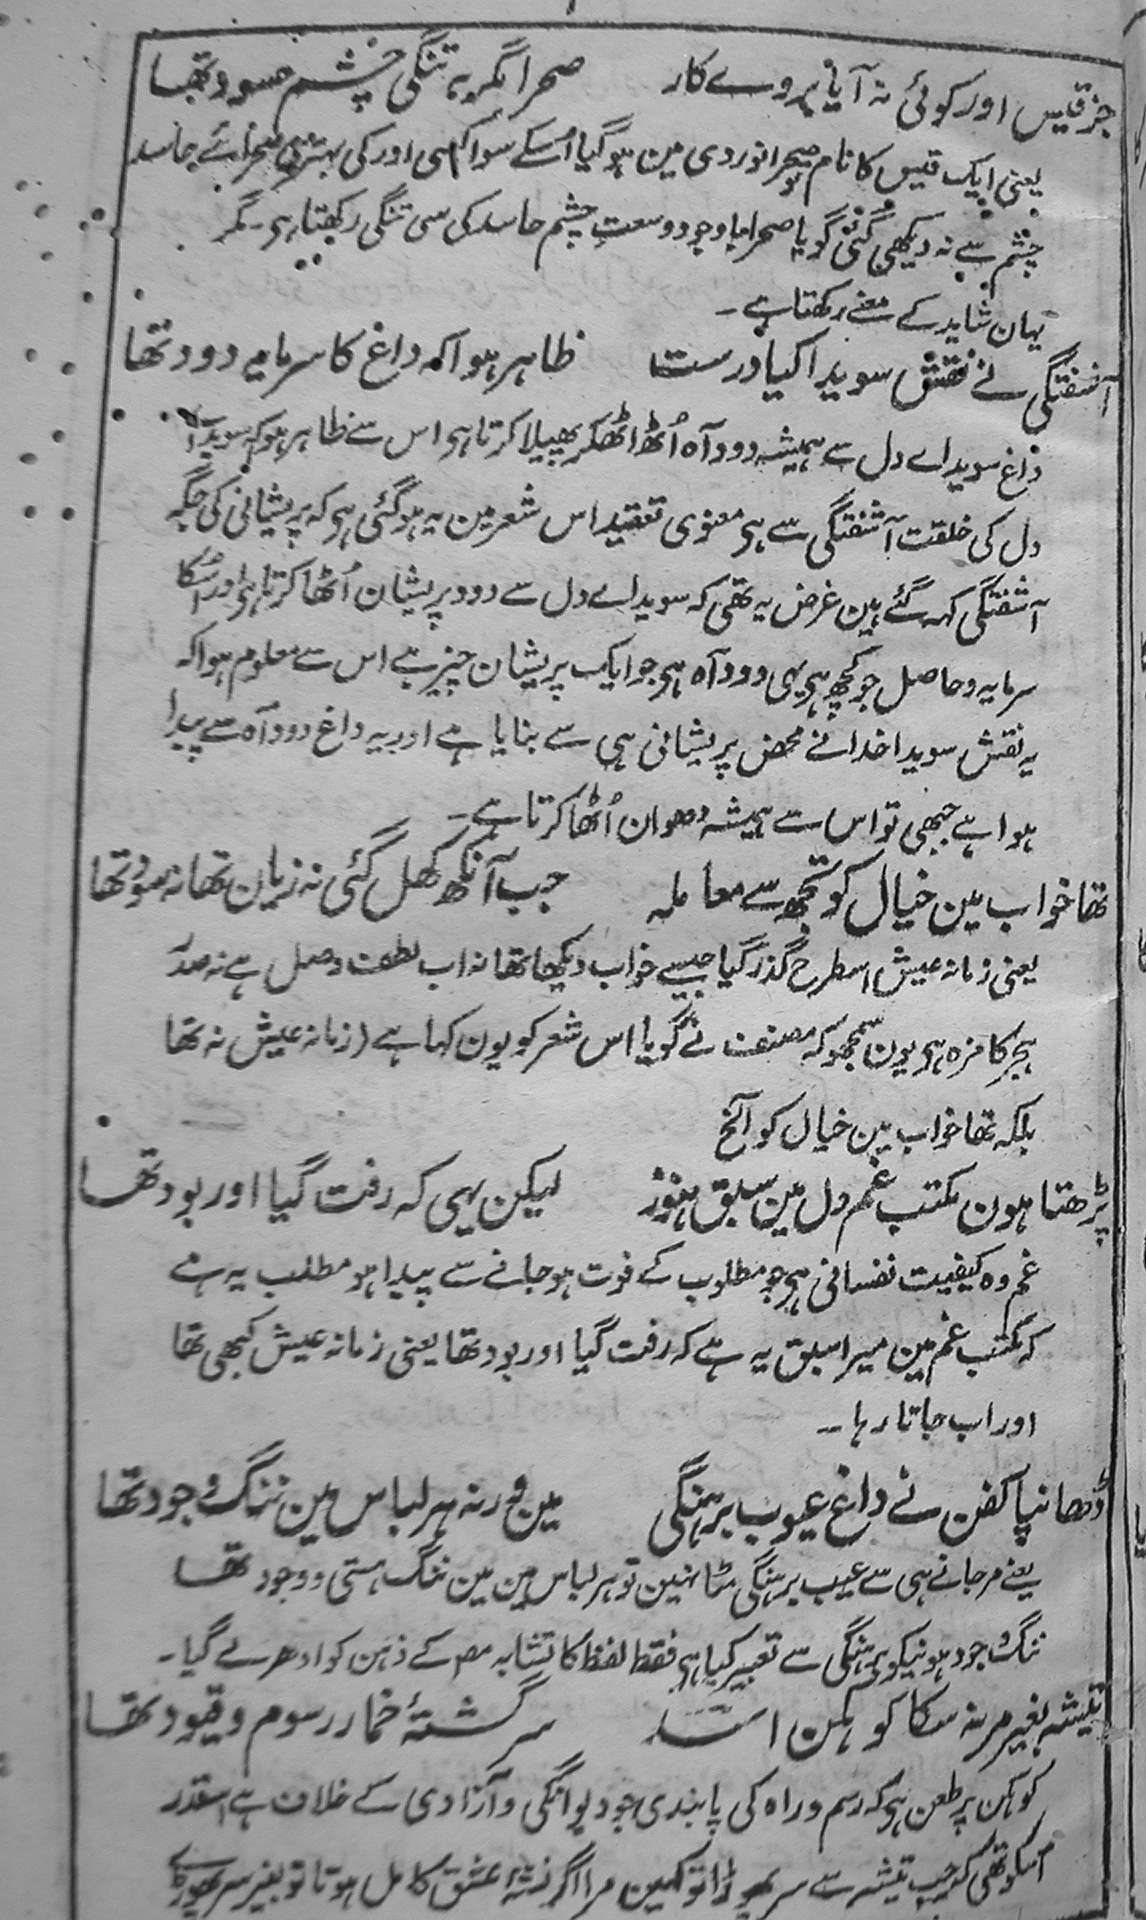 جز قیس اور کوئی نہ آیا بروے کار صحرا مگر بہ تنگی چشم حسود تھا
یعنی ایک قیس کا نام صحرا نوردی مین ہو گیا اُسکے سوا کسی اور کی بہتری صحرائے حاسد
چشم سے نہ دیکھی گئی گویا صحرا باوجود وسعتِ چشم حاسد کی سی تنگی رکھتا ہی۔ مگر
یہان شاید کے معنے رکھتا ہے۔
آشفتگی نے نقش سویدا کیا درست ظاہر ہوا کہ داغ کا سرمایہ دود تھا
داغ سویداے دل سے ہمیشہ دود آہ اُٹھ اُٹھکر پھیلا کرتا ہی اس سے ظاہر ہو کہ سویداے
دل کی خلقت آشفتگی سے ہی معنوی تعقید اس شعر مین یہ ہو گئی ہی کہ پریشانی کی جگہ
آشفتگی کہہ گئے ہین غرض یہ تھی کہ سویداے دل سے دود پریشان اُٹھا کرتا ہی اور اُسکا
سرمایہ و حاصل جو کچھ ہی یہی دود آہ ہی جو ایک پریشان چیز ہے اس سے معلوم ہوا کہ
یہ نقش سویدا خدا نے محض پریشانی ہی سے بنایا ہے اور یہ داغ دود آہ سے پیدا
ہوا ہے جبھی تو اس سے ہمیشہ دھوان اُٹھا کرتا ہے۔
تھا خواب مین خیال کو تجھ سے معاملہ جب آنکھ کھل گئی نہ زیان تھا نہ سود تھا
یعنی زمانہ عیش اسطرح گذر گیا جیسے خواب دیکھا تھا نہ اب لطف وصل ہے نہ صدمۂ
ہجر کا مزہ ہی یون سمجھو کہ مصنف نے گویا اس شعر کو یون کہا ہے (زمانہ عیش نہ تھا
بلکہ تھا خواب مین خیال کو الخ
پڑھتا ہون مکتب غم دل مین سبق ہنوز لیکن یہی کہ رفت گیا اور بود تھا
غم وہ کیفیت نفسانی ہی جو مطلوب کے فوت ہو جانے سے پیدا ہو مطلب یہ ہے
کہ مکتب غم مین میرا سبق یہ ہے کہ رفت گیا اور بود تھا یعنی زمانہ عیش کبھی تھا
اور اب جاتا رہا۔
ڈھانپا کفن نے داغ عیوب برہنگی مین ورنہ ہر لباس مین ننگ وجود تھا
یعنے مر جانے ہی سے عیب برہنگی مٹا نہین تو ہر لباس مین مین ننگ ہستی و وجود تھا
ننگ وجود ہونیکو برہنگی سے تعبیر کیا ہی فقط لفظ کا تشابہ مصنف کے ذہن کو ادھر لے گیا۔
تیشہ بغیر مر نہ سکا کوہکن اسد سرگشتۂ خمار رسوم و قیود تھا
کوہکن پر طعن ہی کہ رسم و راہ کی پابندی جو دیوانگی و آزادی کے خلاف ہے اسقدر
اُسکو تھی کہ جب تیشہ سے سر پھوڑا تو کہین مرا اگر نشۂ عشق کامل ہوتا تو بغیر سر پھوڑے